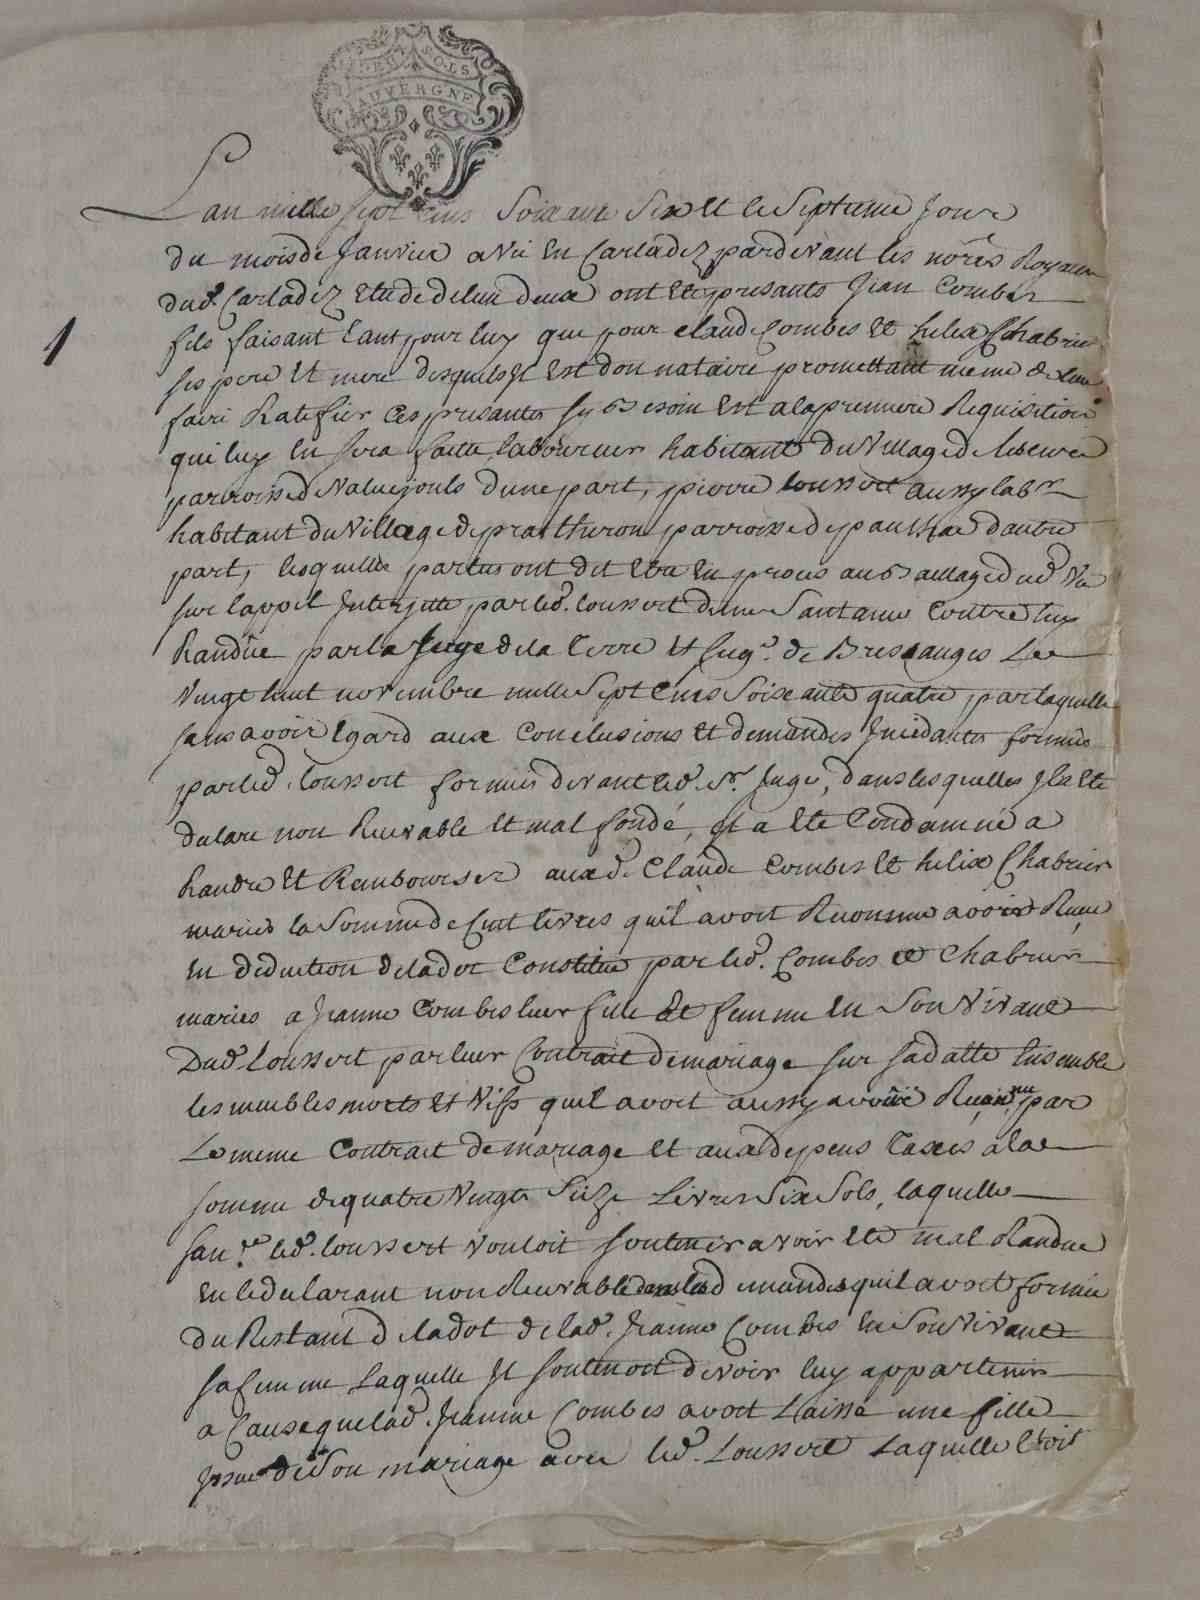 DEUX SOLS
AUVERGNE
L'an mille sept cens soixante six et le septieme jour
du mois de janvier a Vic en Carladez pardevant les no.res Royaux
dud. Carladez ont ete presants Jean Combes
fils faisant tant pour luy que pour Claude Combes et helix Chabrier
ses pere et mere desquels il est donnataire promettant meme de leur
faire Ratefier ces presantes sy besoin est a la premiere Requisition
qui luy en sera faitte, laboureur habitant du Village de
parroisse de Valuejouls d'une part, pierre loussert aussy lab.r
habitant du Village de pratheron parroisse de paulhac d'autre
part, lesquelles parties ont dit etre en proces au Baillage dud. Vic
sur l'appel Interjette par led. loussert d'une Santance Contre luy
Randüe par le Juge de la terre et seig.rie de Bresanges Le
Vingt huit novembre mille Sept Cens Soixante quatre, par laquelle
sans avoir Egard aux Conclusions et demandes Incidantes formées
par led. loussert formées devant led. Sr. Juge, dans lesquelles Il a ete
declare non Recevable et mal fondé, Il a ete Condamné a
Randre et Rembourser auxd. Claude Combes et helix Chabrier
mariés la Somme de Cent livres qu'il avoit Reconnue avoir Recue
en deduction de la dot Constituée par led. Combes et Chabrier
mariés a Jeanne Combes leur fille et femme en Son Vivant
Dud. Loussert par leur Contrait de mariage sur sa datte Ensemble
les meubles morts et Vifs qu'il avoit aussy avoir Recon.nu par
Le meme Contrait de mariage et aux depens taxés a la
somme de quatre Vingts Seize Livres Six Sols, laquelle
San.ce led. loussert vouloit soutenir avoir ete mal Randue
en le declarant non Recevable dans les demandes qu'il avoit formée
du Restant de la dot de lad. Jeanne Combes en Son Vivant
sa femme Laquelle Il soutenoit devoir luy appartenir
a Cause que lad. Jeanne Combes avoit Laissé une fille
Issue de Son mariage avec led. Loussert Laquelle etoit
1